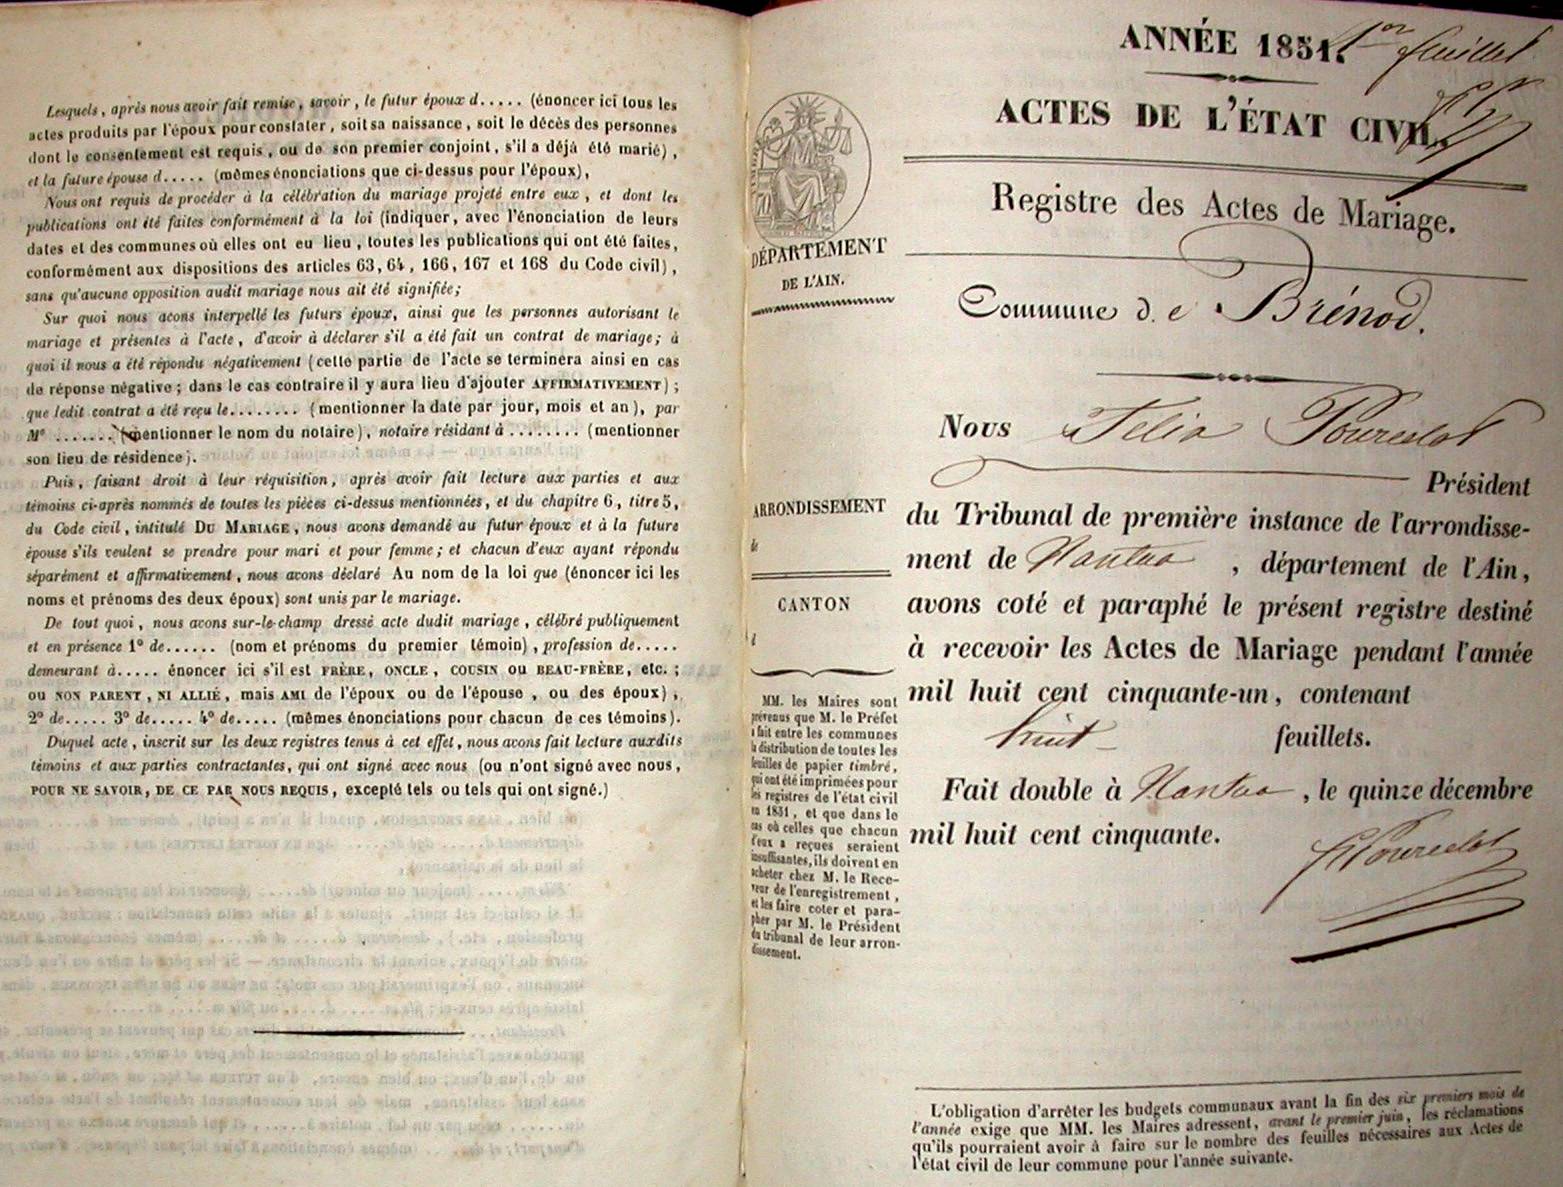 Lesquels, après nous avoir fait remise, savoir, le futur époux d..... (énoncer ici tous les
actes produits par l'époux pour constater, soit sa naissance, soit le décès des personnes
dont le consentement est requis, ou de son premier conjoint, s'il a déjà été marié),
et la future épouse d..... (mêmes énonciations que ci-dessus pour l'époux),
Nous ont requis de procéder à la célébration du mariage projeté entre eux, et dont les
publications ont été faites conformément à la loi (indiquer, avec l'énonciation de leurs
dates et des communes où elles ont eu lieu, toutes les publications qui ont été faites,
conformément aux dispositions des articles 63, 64, 166, 167 et 168 du Code civil),
sans qu'aucune opposition audit mariage nous ait été signifiée;
Sur quoi nous avons interpellé les futurs époux, ainsi que les personnes autorisant le
mariage et présentes à l'acte, d'avoir à déclarer s'il a été fait un contrat de mariage; à
quoi il nous a été répondu négativement (cette partie de l'acte se terminera ainsi en cas
de réponse négative; dans le cas contraire il y aura lieu d'ajouter AFFIRMATIVEMENT);
que ledit contrat a été reçu le........ (mentionner la date par jour, mois et an), par
Me ....... (mentionner le nom du notaire), notaire résidant à ........ (mentionner
son lieu de résidence).
Puis, faisant droit à leur réquisition, après avoir fait lecture aux parties et aux
témoins ci-après nommés de toutes les pièces ci-dessus mentionnées, et du chapitre 6, titre 5,
du Code civil, intitulé DU MARIAGE, nous avons demandé au futur époux et à la future
épouse s'ils veulent se prendre pour mari et pour femme; et chacun d'eux ayant répondu
séparément et affirmativement, nous avons déclaré Au nom de la loi que (énoncer ici les
noms et prénoms des deux époux) sont unis par le mariage.
De tout quoi, nous avons sur-le-champ dressé acte dudit mariage, célébré publiquement
et en présence 1° de...... (nom et prénoms du premier témoin), profession de.....
demeurant à..... énoncer ici s'il est FRÈRE, ONCLE, COUSIN OU BEAU-FRÈRE, etc.;
ou NON PARENT, NI ALLIÉ, mais AMI de l'époux ou de l'épouse, ou des époux),
2° de..... 3° de..... 4° de..... (mêmes énonciations pour chacun de ces témoins).
Duquel acte, inscrit sur les deux registres tenus à cet effet, nous avons fait lecture auxdits
témoins et aux parties contractantes, qui ont signé avec nous (ou n'ont signé avec nous,
POUR NE SAVOIR, DE CE PAR NOUS REQUIS, excepté tels ou tels qui ont signé.)
ANNÉE 1851.
1er feuillet
ACTES DE L'ÉTAT CIVIL.
Registre des Actes de Mariage.
DÉPARTEMENT
DE L'AIN.
Commune de Brénod.
Nous Félix Pourcelot
Président
ARRONDISSEMENT
de
CANTON
d
du Tribunal de première instance de l'arrondisse-
ment de Nantua, département de l'Ain,
avons coté et paraphé le présent registre destiné
à recevoir les Actes de Mariage pendant l'année
mil huit cent cinquante-un, contenant
huit feuillets.
Fait double à Nantua, le quinze décembre
mil huit cent cinquante.
Pourcelot
MM. les Maires sont
prévenus que M. le Préfet
a fait entre les communes
la distribution de toutes les
feuilles de papier timbré,
qui ont été imprimées pour
les registres de l'état civil
en 1851, et que dans le
cas où celles que chacun
d'eux a reçues seraient
insuffisantes, ils doivent en
acheter chez M. le Rece-
veur de l'enregistrement,
et les faire coter et para-
pher par M. le Président
du tribunal de leur arron-
dissement.
L'obligation d'arrêter les budgets communaux avant la fin des six premiers mois de
l'année exige que MM. les Maires adressent, avant le premier juin, les réclamations
qu'ils pourraient avoir à faire sur le nombre des feuilles nécessaires aux Actes de
l'état civil de leur commune pour l'année suivante.